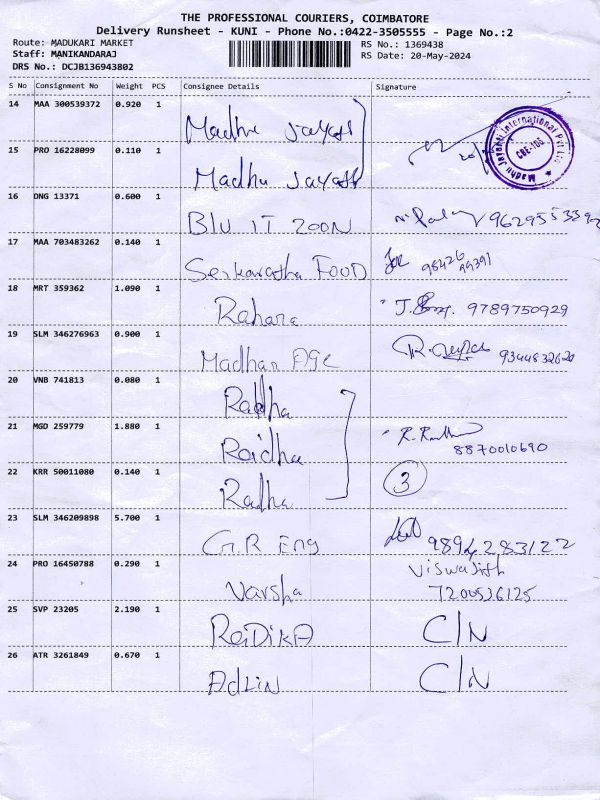 THE PROFESSIONAL COURIERS, COIMBATORE
Delivery Runsheet - KUNI - Phone No.:0422-3505555 - Page No.:2
Route: MADUKARI MARKET
RS No.: 1369438
Staff: MANIKANDARAJ
RS Date: 20-May-2024
DRS No.: DCJB136943802
S No Consignment No Weight PCS Consignee Details Signature
14 MAA 300539372 0.920 1 Madhu Jayath
Madhu Jayanti International Pvt. Ltd. CBE-106
15 PRO 16228099 0.110 1 Madhu Jayath
16 DNG 13371 0.600 1 Blu IT ZOON
17 MAA 703483262 0.140 1 FOOD 98426 99391
18 MRT 359362 1.090 1 Rahara 9789750929
19 SLM 346276963 0.900 1 Madhan Age 9344832620
20 VNB 741813 0.080 1 Radha
21 MGD 259779 1.880 1 Raidha 8870010690
22 KRR 50011080 0.140 1 Radha 3
23 SLM 346209898 5.700 1 G.R Eng 9894283122
24 PRO 16450788 0.290 1 Varsha Viswajith
7200536125
25 SVP 23205 2.190 1 RaDikA C/N
26 ATR 3261849 0.670 1 AdLIN C/N